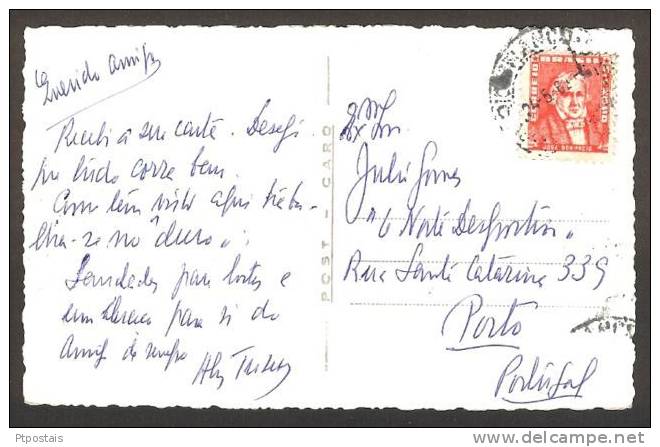 Querido Amigo
Recebi a sua carta. Desejo
que tudo corra bem.
Como tem visto aqui traba-
lha-se no "duro".
Saudades para todos e
um abraço para si do
Amigo de sempre
POST - CARD
Exmo Snr
Julio Gomes
"O Norte Desportivo"
Rua Santa Catarina 339
Porto
Portugal
CORREIO
Ptpostais
www.delcampe.net